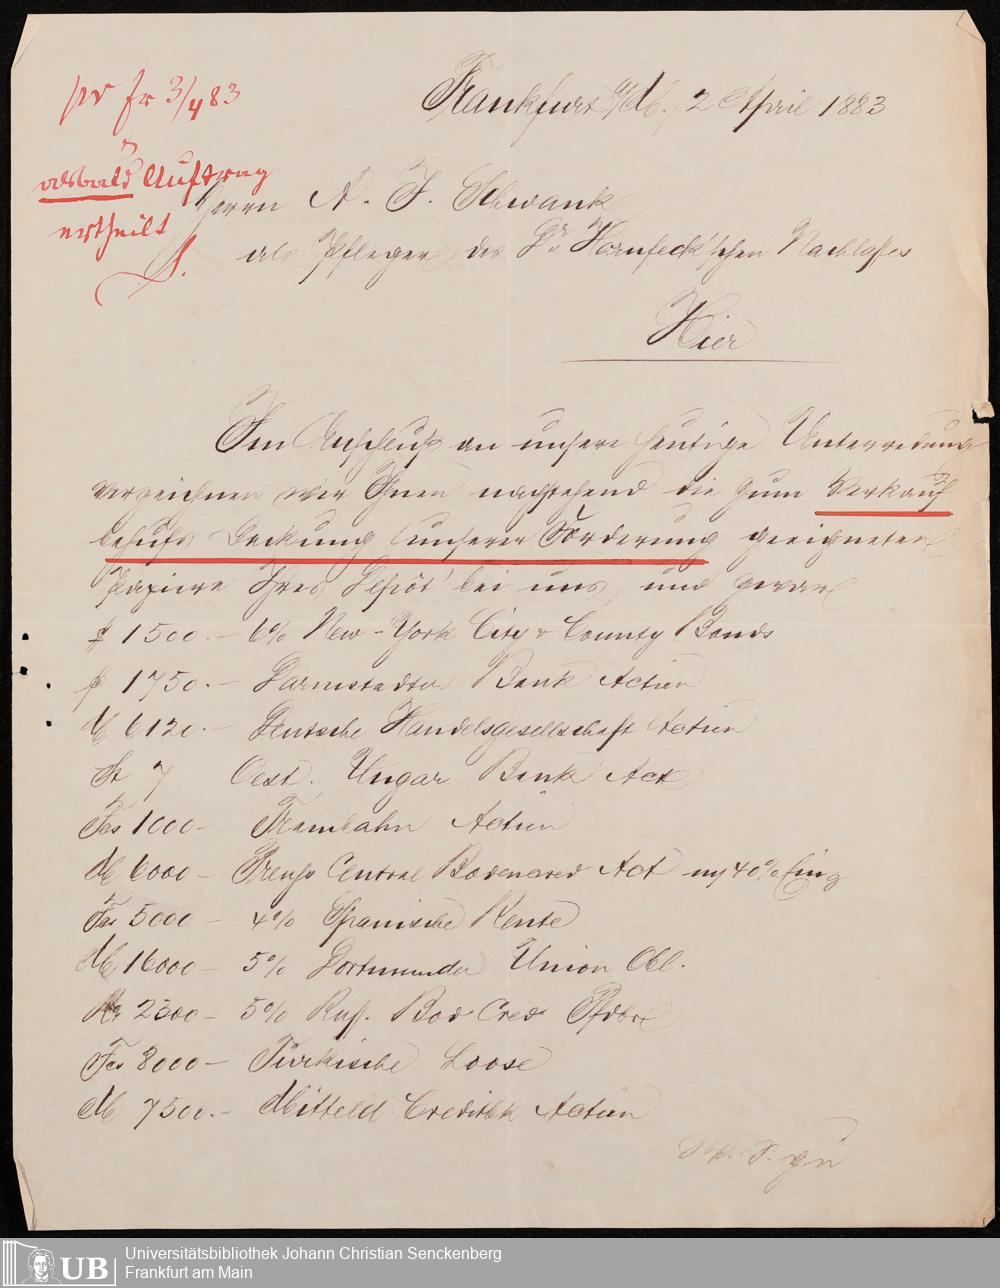 pr fr 3/4 83
alsbald Auftrag
ertheilt
S.
Frankfurt a/M., 2 April 1883
Herrn A. F. Schwank
als Pfleger des Dr. Hornfeck'schen Nachlasses
Hier
Im Anschluß an unsere heutige Unterredung
verzeichnen wir Ihnen nachstehend die zum Verkauf
behufs Deckung unserer Forderung geeigneten
Papiere Ihres Depôt bei uns, und zwar
$ 1500.- 6% New-York City & County Bonds
f 1750.- Darmstädter Bank Actien
M 6120.- Deutsche Handelsgesellschaft Actien
St 7 Oest. Ungar Bank Act
Fcs 1000- Trambahn Actien
M 6000- Preuss Central Bodencred Act m/ 40% Einz
Fcs 5000- 4% Spanische Rente
M 16000- 5% Dortmunder Union Obl.
Ro 2300- 5% Russ. Bod Cred Pfdbr
Fcs 8000- Türkische Loose
M 7500.- Mitteld Creditbk Actien